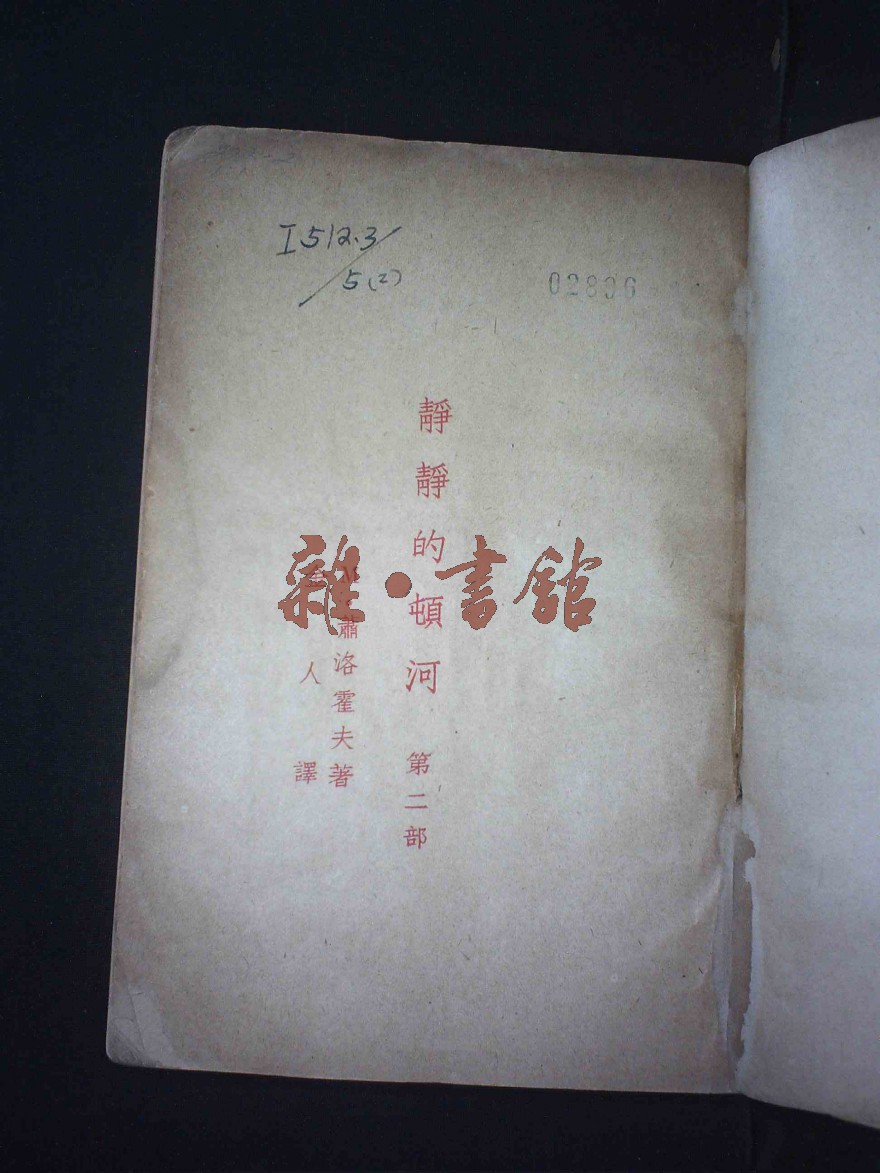 I512.3/
5(2)
02836
靜靜的頓河 第二部
M·蕭洛霍夫著
金人譯
雜·書館